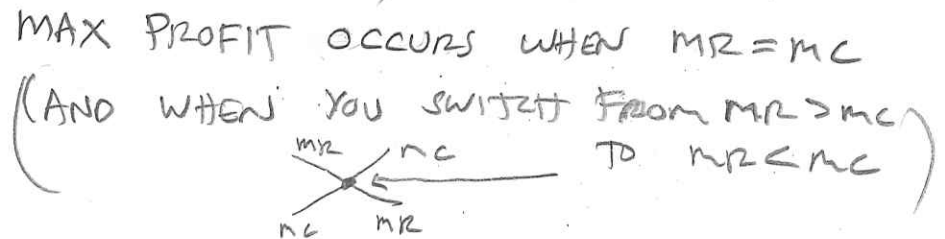 MAX PROFIT OCCURS WHEN MR = MC
(AND WHEN YOU SWITCH FROM MR > MC
TO MR < MC)
MR MC
MC MR